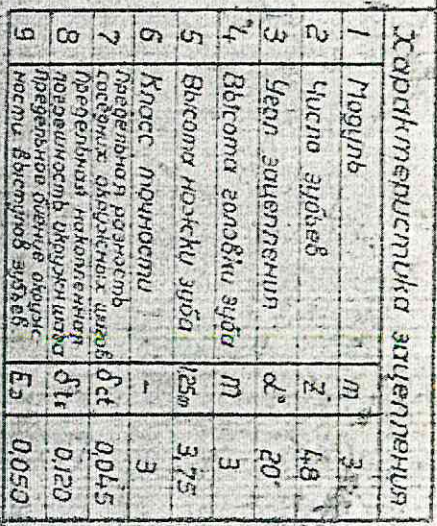 Характеристика зацепления
1 Модуль m 3
2 Число зубьев Z 48
3 Угол зацепления α° 20°
4 Высота головки зуба m 3
5 Высота ножки зуба 1,25m 3,75
6 Класс точности – 3
7 Предельная разность
соседних окружных шагов δct 0,045
8 Предельная накопленная
погрешность окр. шага δtε 0,120
9 Предельное биение окруж-
ности выступов зубьев 0,050